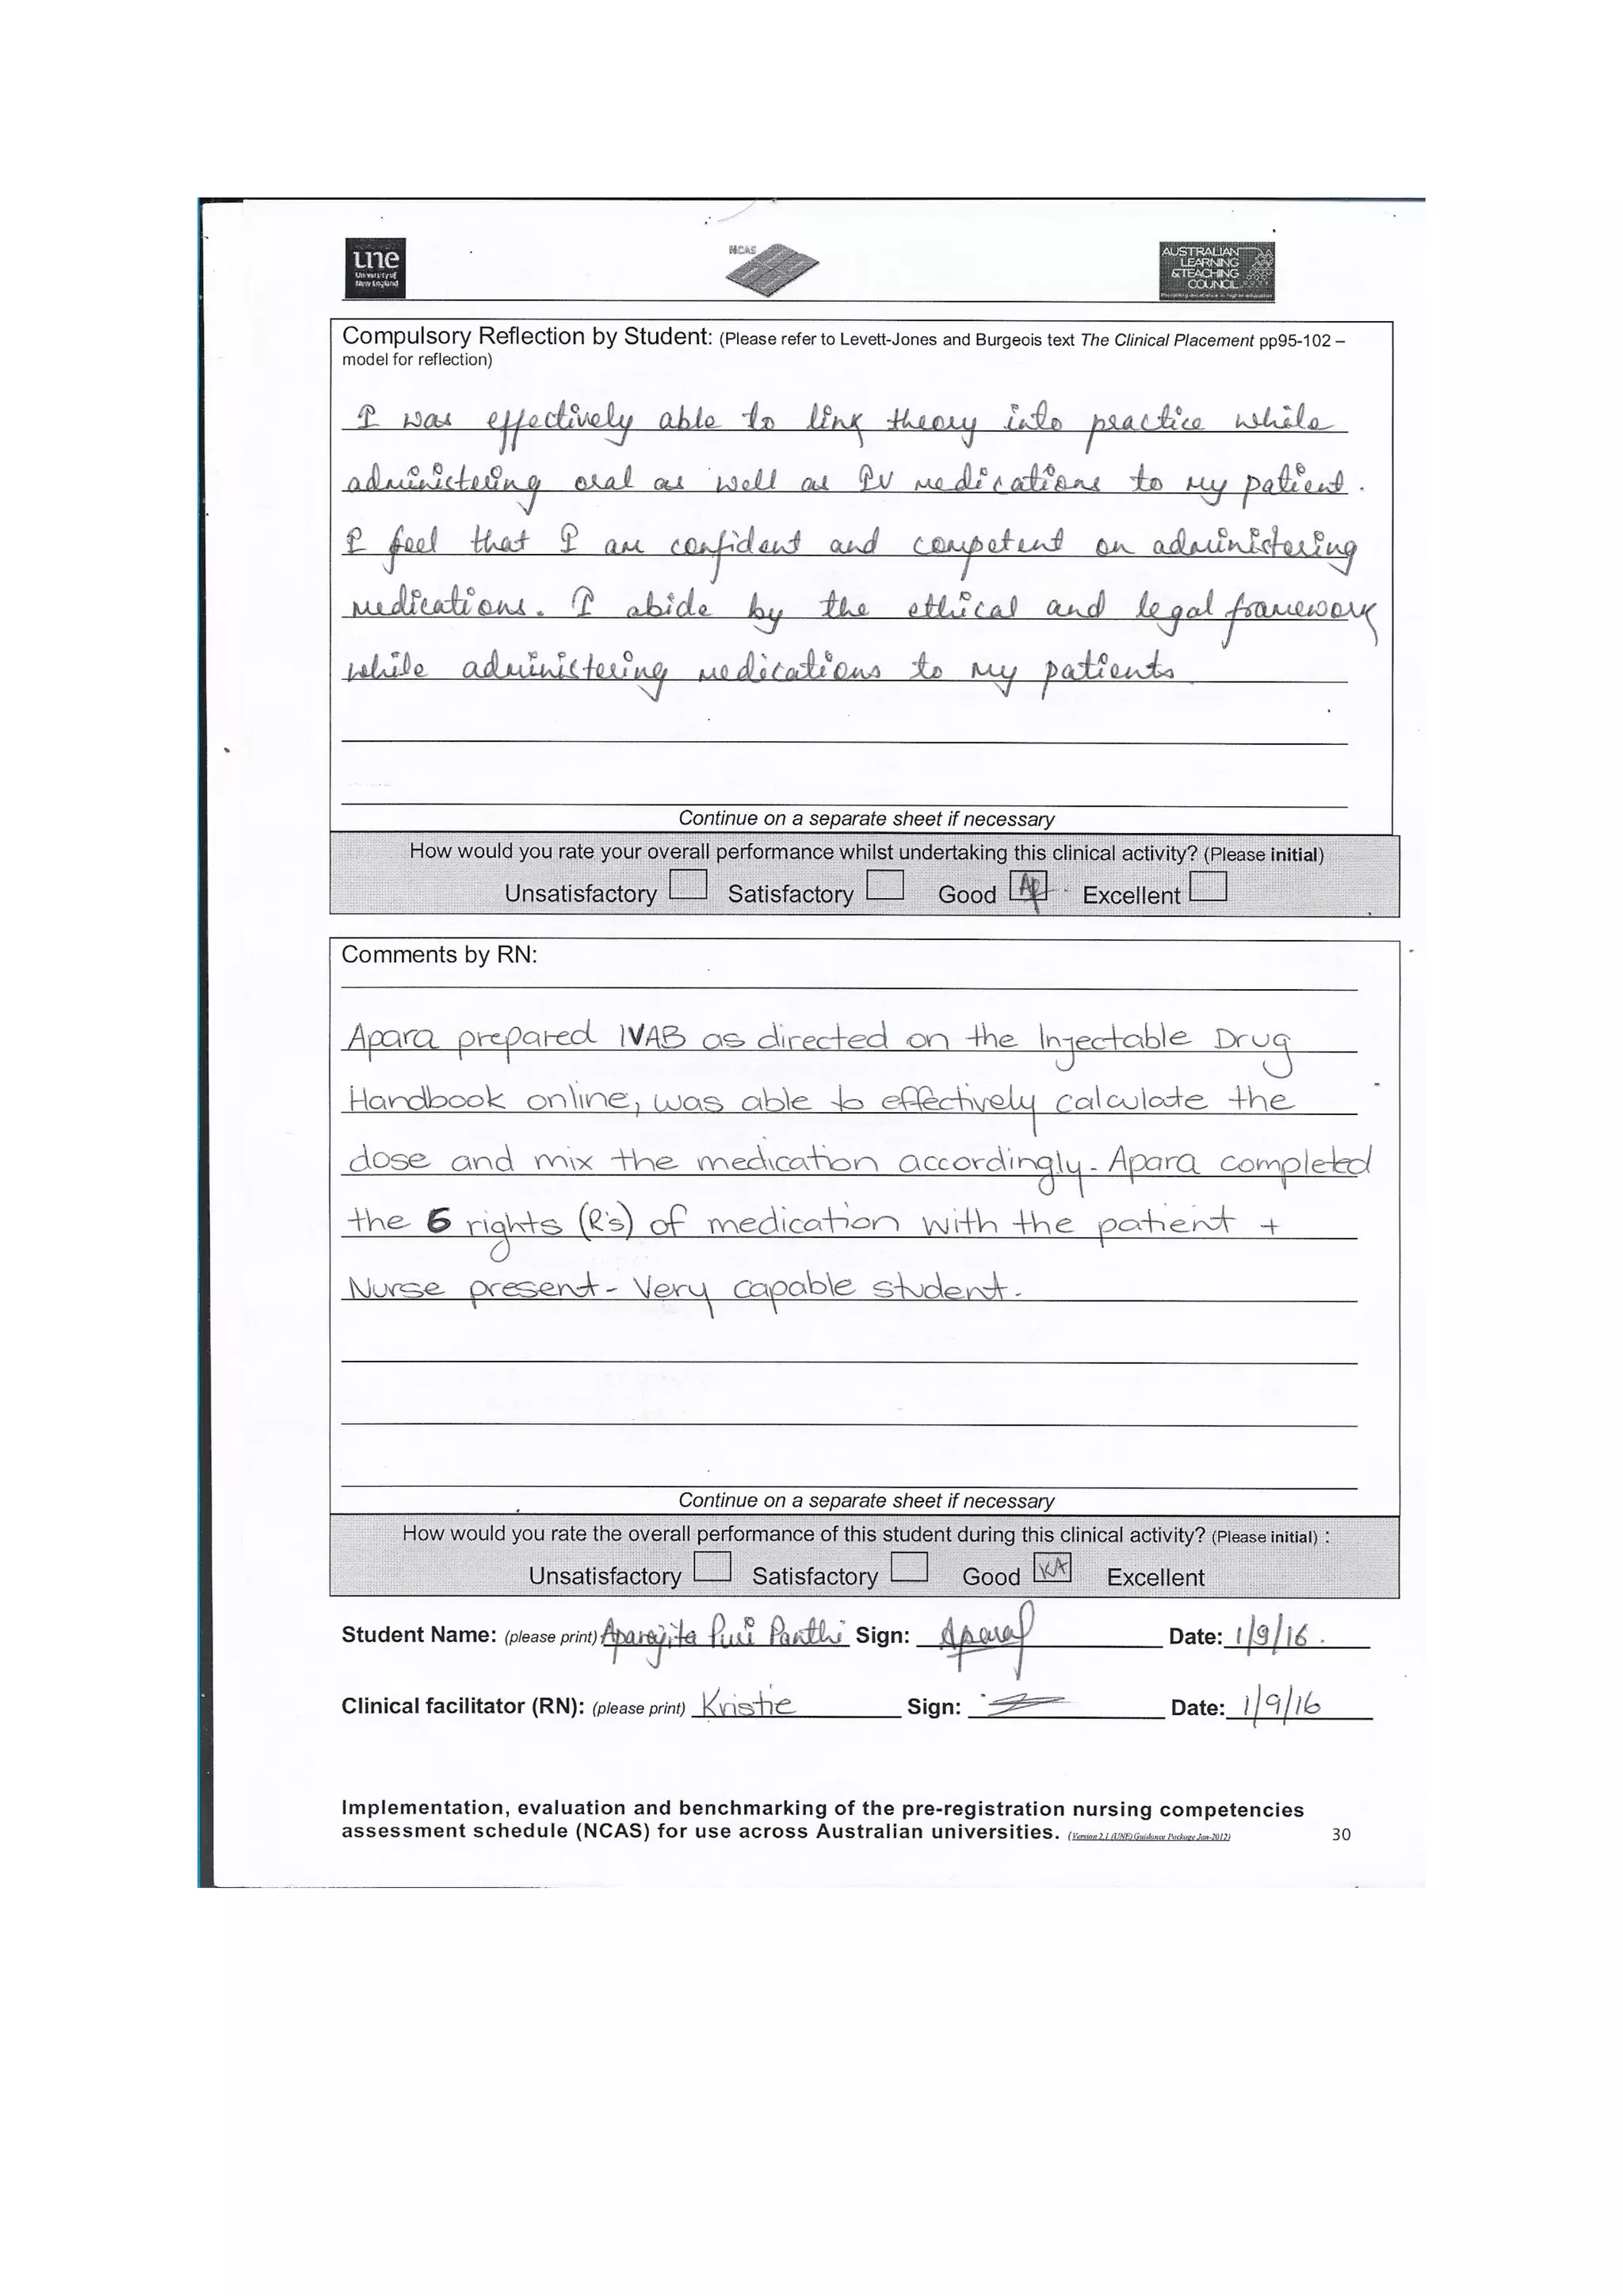 une
University of
New England
NCAS
AUSTRALIAN
LEARNING
&TEACHING
COUNCIL
Compulsory Reflection by Student: (Please refer to Levett-Jones and Burgeois text The Clinical Placement pp95-102 –
model for reflection)
I was effectively able to link theory into practice while
administering oral as well as IV medications to my patient.
I feel that I am confident and competent on administering
medications. I abide by the ethical and legal framework
while administering medications to my patients
Continue on a separate sheet if necessary
How would you rate your overall performance whilst undertaking this clinical activity? (Please initial)
Unsatisfactory Satisfactory Good AP Excellent
Comments by RN:
Apara prepared IVAB as directed on the Injectable Drug
Handbook online, was able to effectively calculate the
dose and mix the medication accordingly. Apara completed
the 6 rights (R's) of medication with the patient +
Nurse present - Very capable student.
Continue on a separate sheet if necessary
How would you rate the overall performance of this student during this clinical activity? (Please initial) :
Unsatisfactory Satisfactory Good KA Excellent
Student Name: (please print) Aparajita Puri Panthi Sign: Date: 1/9/16.
Clinical facilitator (RN): (please print) Kristie Sign: Date: 1/9/16
Implementation, evaluation and benchmarking of the pre-registration nursing competencies
assessment schedule (NCAS) for use across Australian universities. (Version 2.1 (UNE) Guidance Package Jan-2012) 30